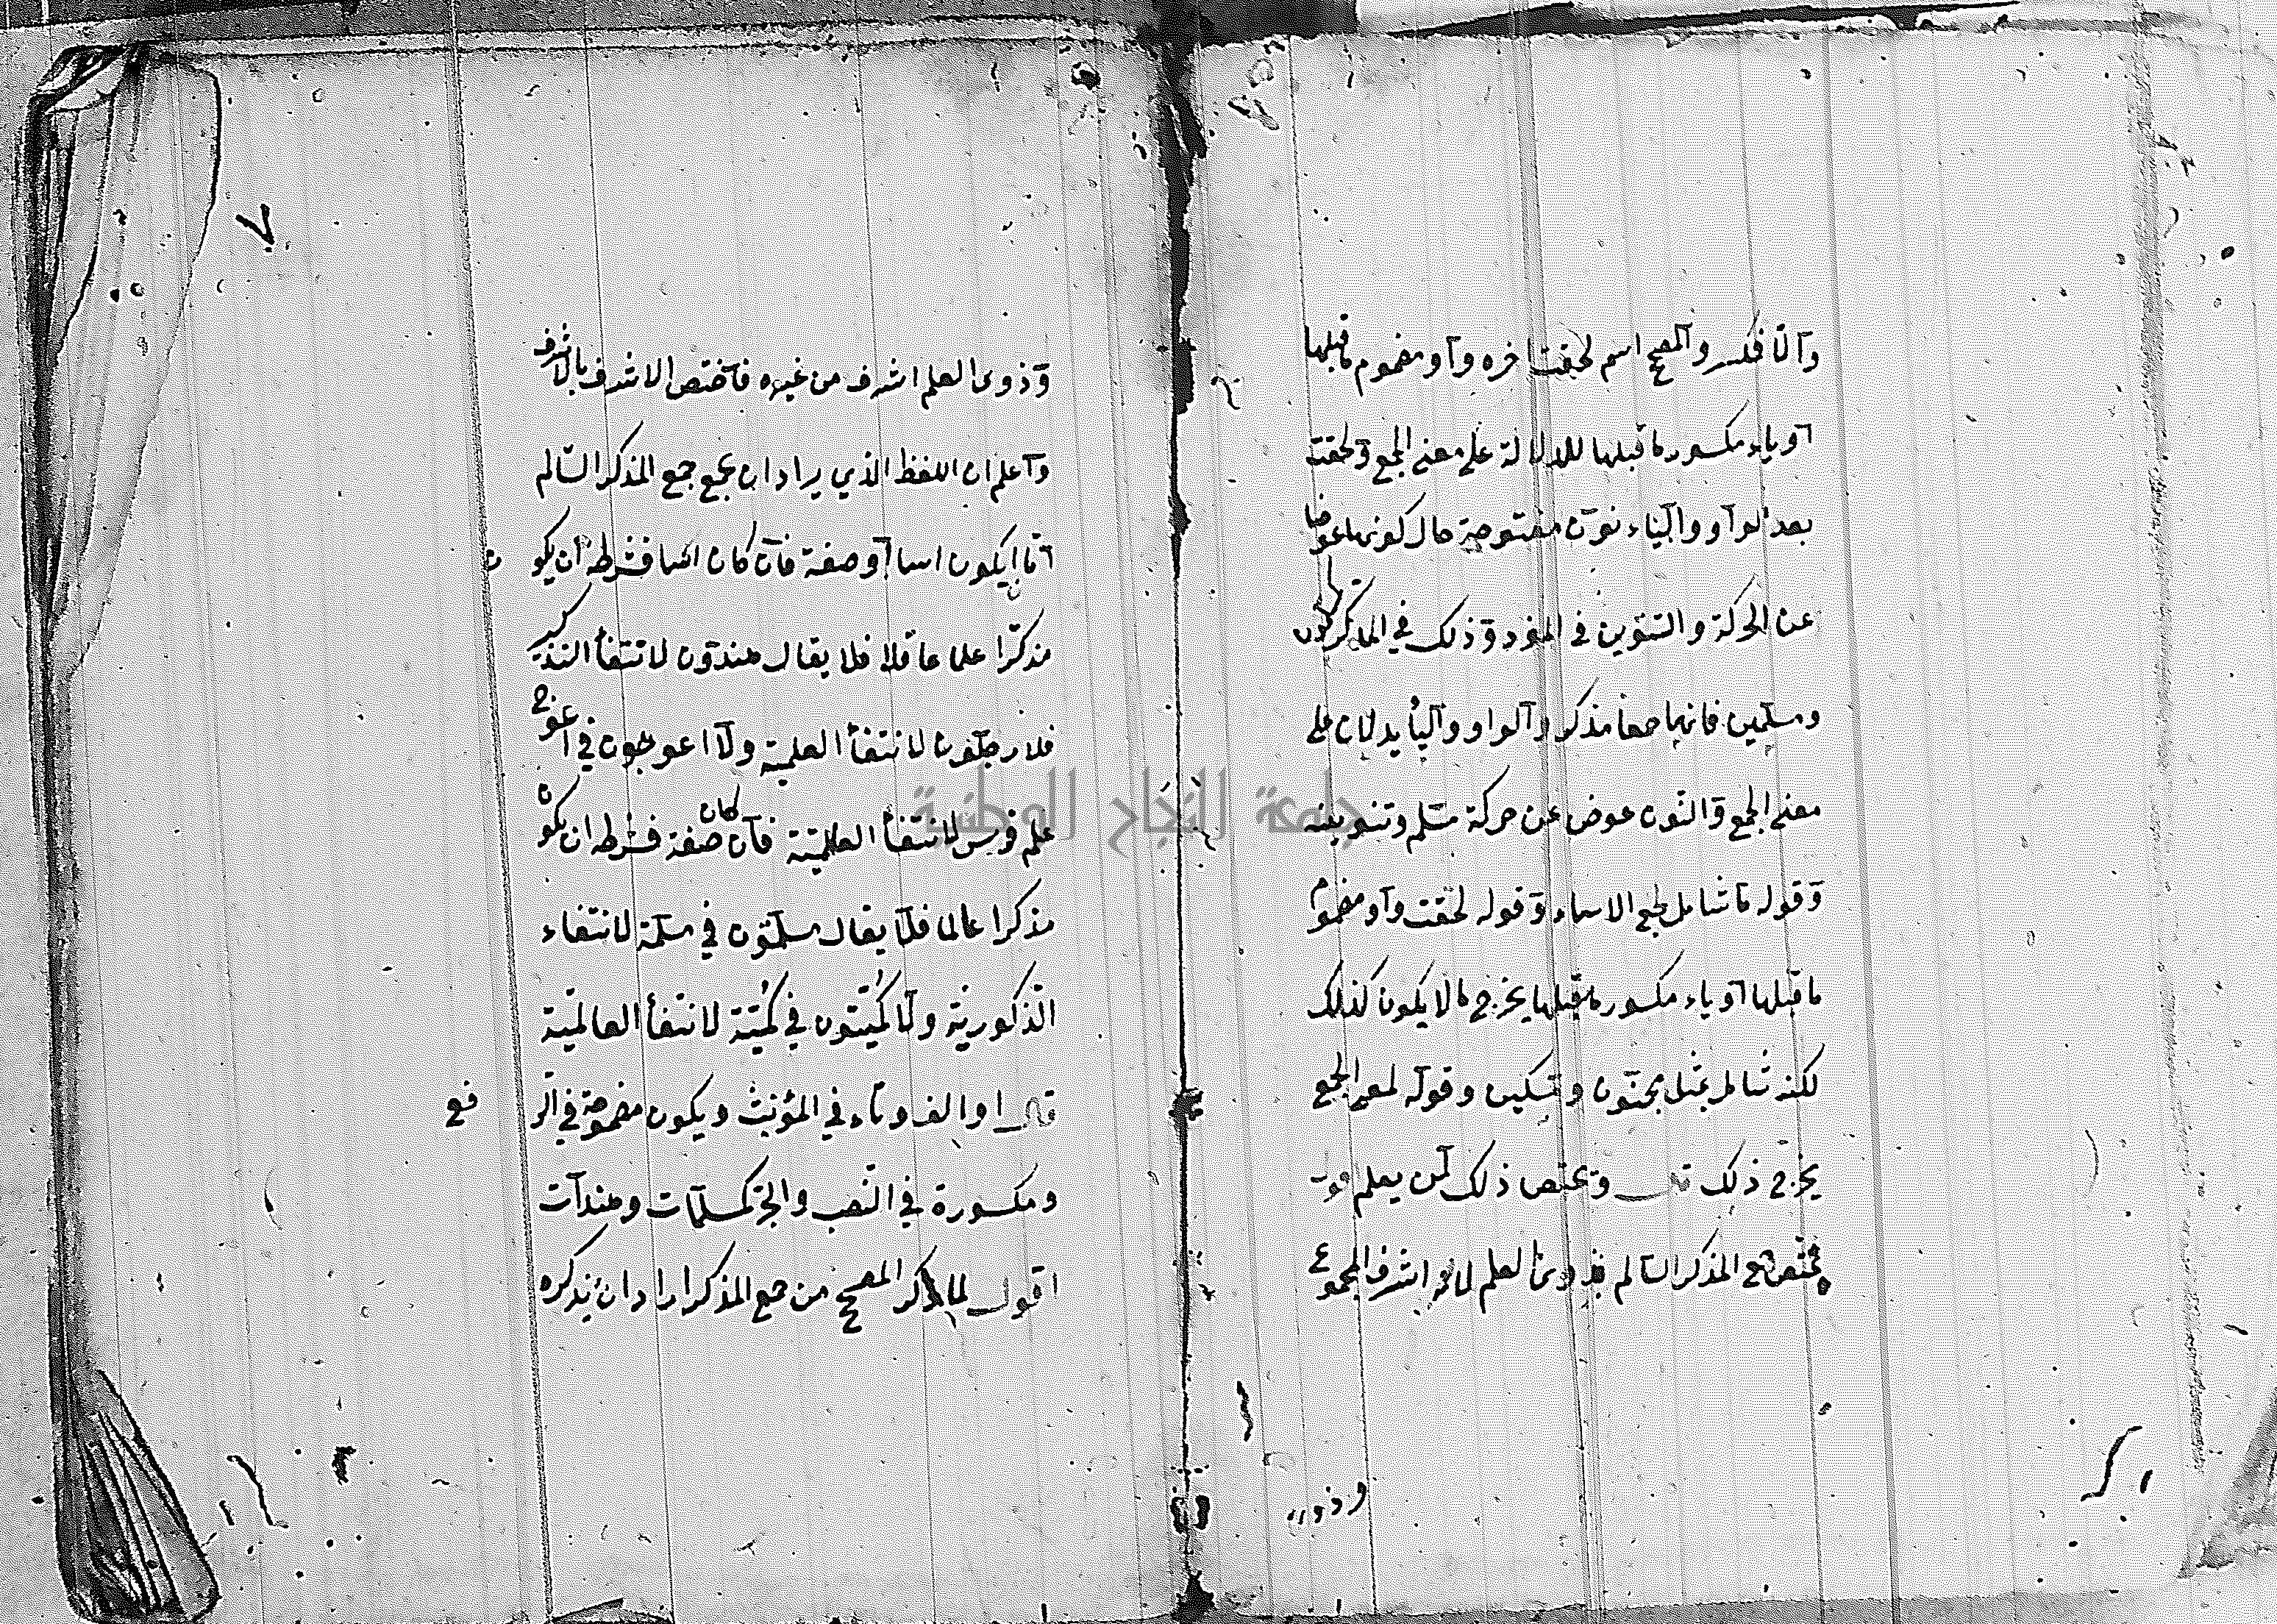 والا فمكسر والمصحح اسم لحقت اخره واو مضموم ماقبلها
او ياء مكسور ماقبلها للدلالة على معنى الجمع ولحقت
بعد الواو والياء نون مفتوحة حال كونها عوضا
عن الحركة والتنوين في المفرد وذلك في المذكر كمسلمون
ومسلمين فانهما جمعا مذكر والواو والياء يدلان على
معنى الجمع والنون عوض عن حركة مسلم وتنوينه
وقوله ما شامل لجميع الاسماء وقوله لحقت واو مضموم
ماقبلها او ياء مكسور ماقبلها يخرج ما لا يكون كذلك
لكنه شامل بمثل مجنون ومسكين وقوله لمعنى الجمع
يخرج ذلك قال ويختص ذلك لمن يعلم
يختص جمع المذكر السالم بذوي العلم لانه اشرف الجموع
وذوي
٧
وذوى العلم اشرف من غيره فاختص الاشرف بالاشرف
واعلم ان اللفظ الذي يراد ان يجمع جمع المذكر السالم
اما ان يكون اسما او صفة فان كان اسما فشرطه ان يكون
مذكرا علما عاقلا فلا يقال هندون لانتفأ التذكير
فلا رجلون لانتفأ العلمية ولا اعوجون في اعوج
علم فرس لانتفأ العالمية فان كان صفة فشرطه ان يكون
مذكرا عالما فلا يقال مسلمون في مسلمة لانتفاء
الذكورية ولا كميتون في كميتة لانتفأ العالمية
قال او الف وتاء في المؤنث ويكون مضمومة في الرفع
ومكسورة في النصب والجر كمسلمات وهندات
اقول لما ذكر المصحح من جمع المذكر اراد ان يذكره
جامعة النجاح الوطنية